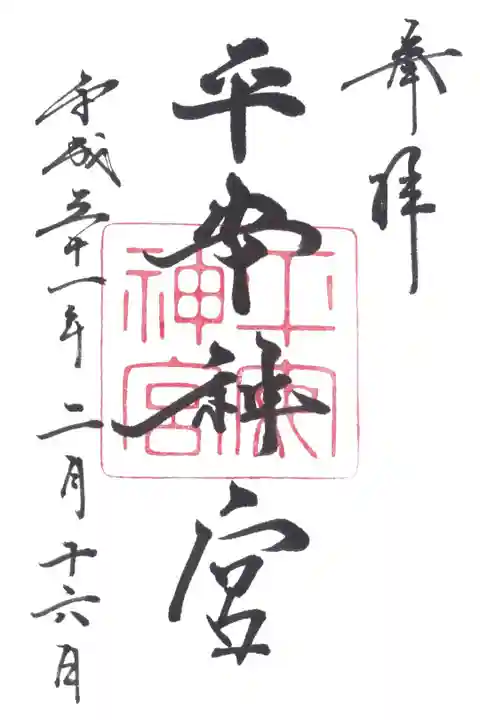 奉拝
平安神宮
平安神宮
平成三十一年二月十六日